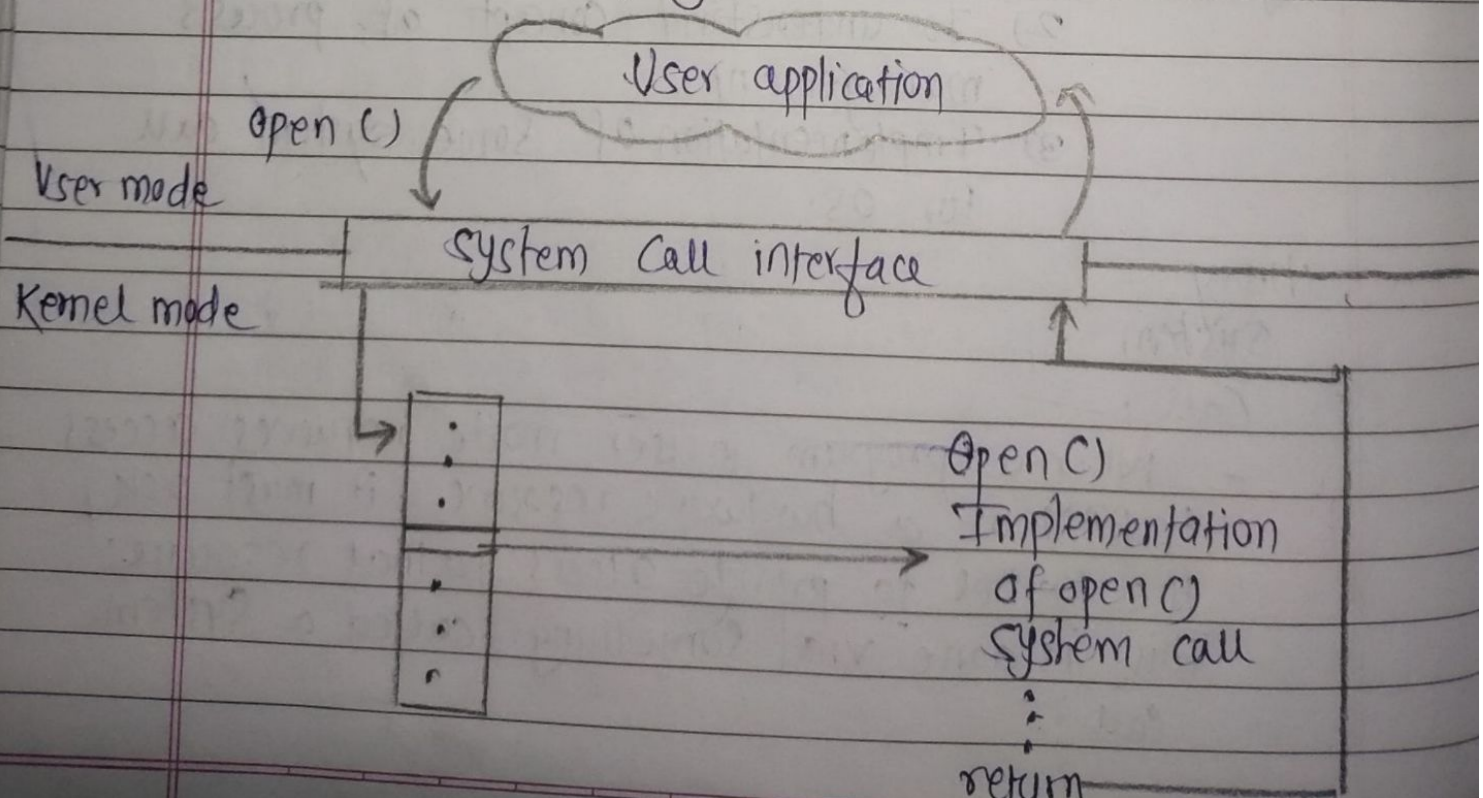 User application
open ()
User mode
System Call interface
Kernel mode
Open ()
Implementation
of open ()
System call
return